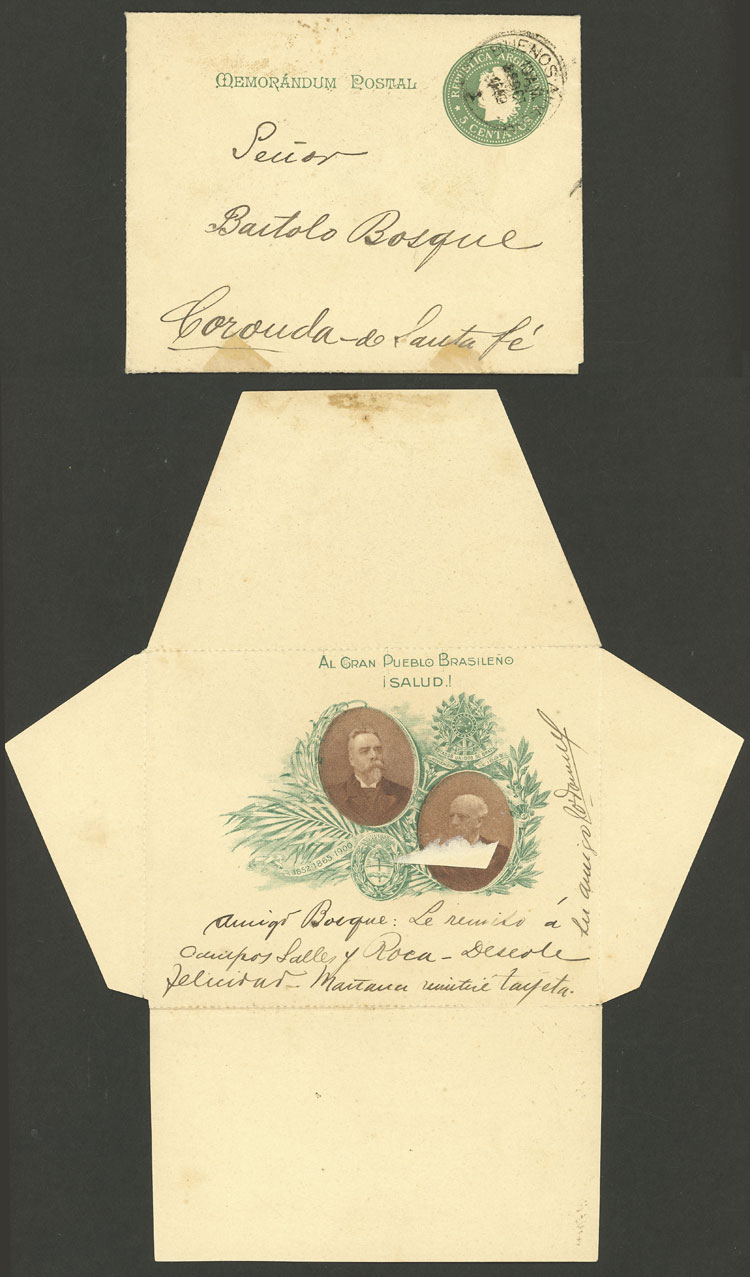 MEMORÁNDUM POSTAL
REPUBLICA ARGE
5 CENTAVOS
BUENOS AI
Señor
Bartolo Bosque
Coronda - de Santa fé
AL GRAN PUEBLO BRASILEÑO
¡SALUD.!
1852-1865-1900
Amigo Bosque: Le remito á
Campos Salles y Roca - Deseole
felicidad - Mañana remitiré tarjeta.
Su amigo